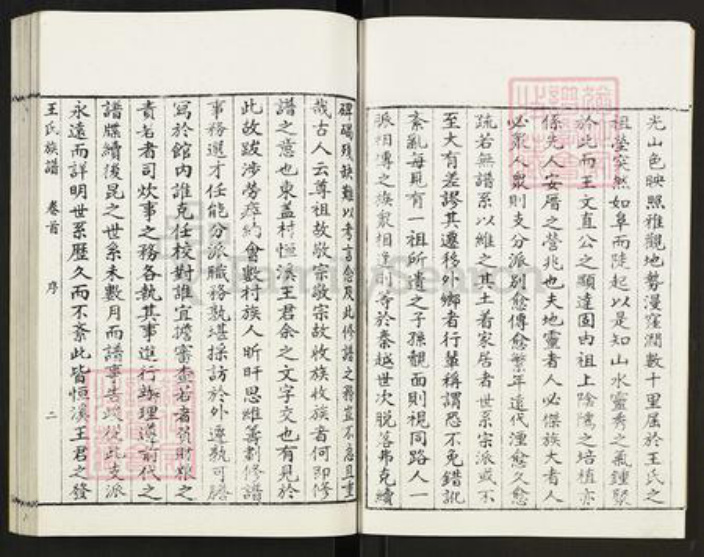 光山色映照雅觀地勢漫窪濶數十里屬於王氏之
祖塋突然如阜而陡起以是知山水靈秀之氣鍾聚
於此而王文直公之顯達固由祖上陰隲之培植亦
係先人安厝之營兆也夫地靈者人必傑族大者人
必眾人眾則支分派別愈傳愈繁年遠代湮愈久愈
疏若無譜系以維之其土着家居者世系宗派或不
至大有差謬其遷移外鄉者行輩稱謂恐不免錯訛
紊亂每見有一祖所遺之子孫覿面則視同路人一
派相傳之族眾相逢則等於秦越世次脫落弗克續
碑碣殘缺難以考言念及此修譜之舉豈不急且重
哉古人云尊祖故敬宗敬宗故收族收族者何即修
譜之意也東盖村恒溪王君余之文字交也有見於
此故跋涉勞瘁約會數村族人昕旰思維籌劃修譜
事務選才任能分派職務孰堪採訪於外遷孰可謄
寫於館內誰克任校對誰宜擔審查若者貲財糧之
責若者司炊事之務各執其事進行辦理遵前代之
譜牒續後昆之世系未數月而譜事告竣從此支派
永遠而詳明世系歷久而不紊此皆恒溪王君之發
王氏族譜 卷首 序 二
FamilySearch